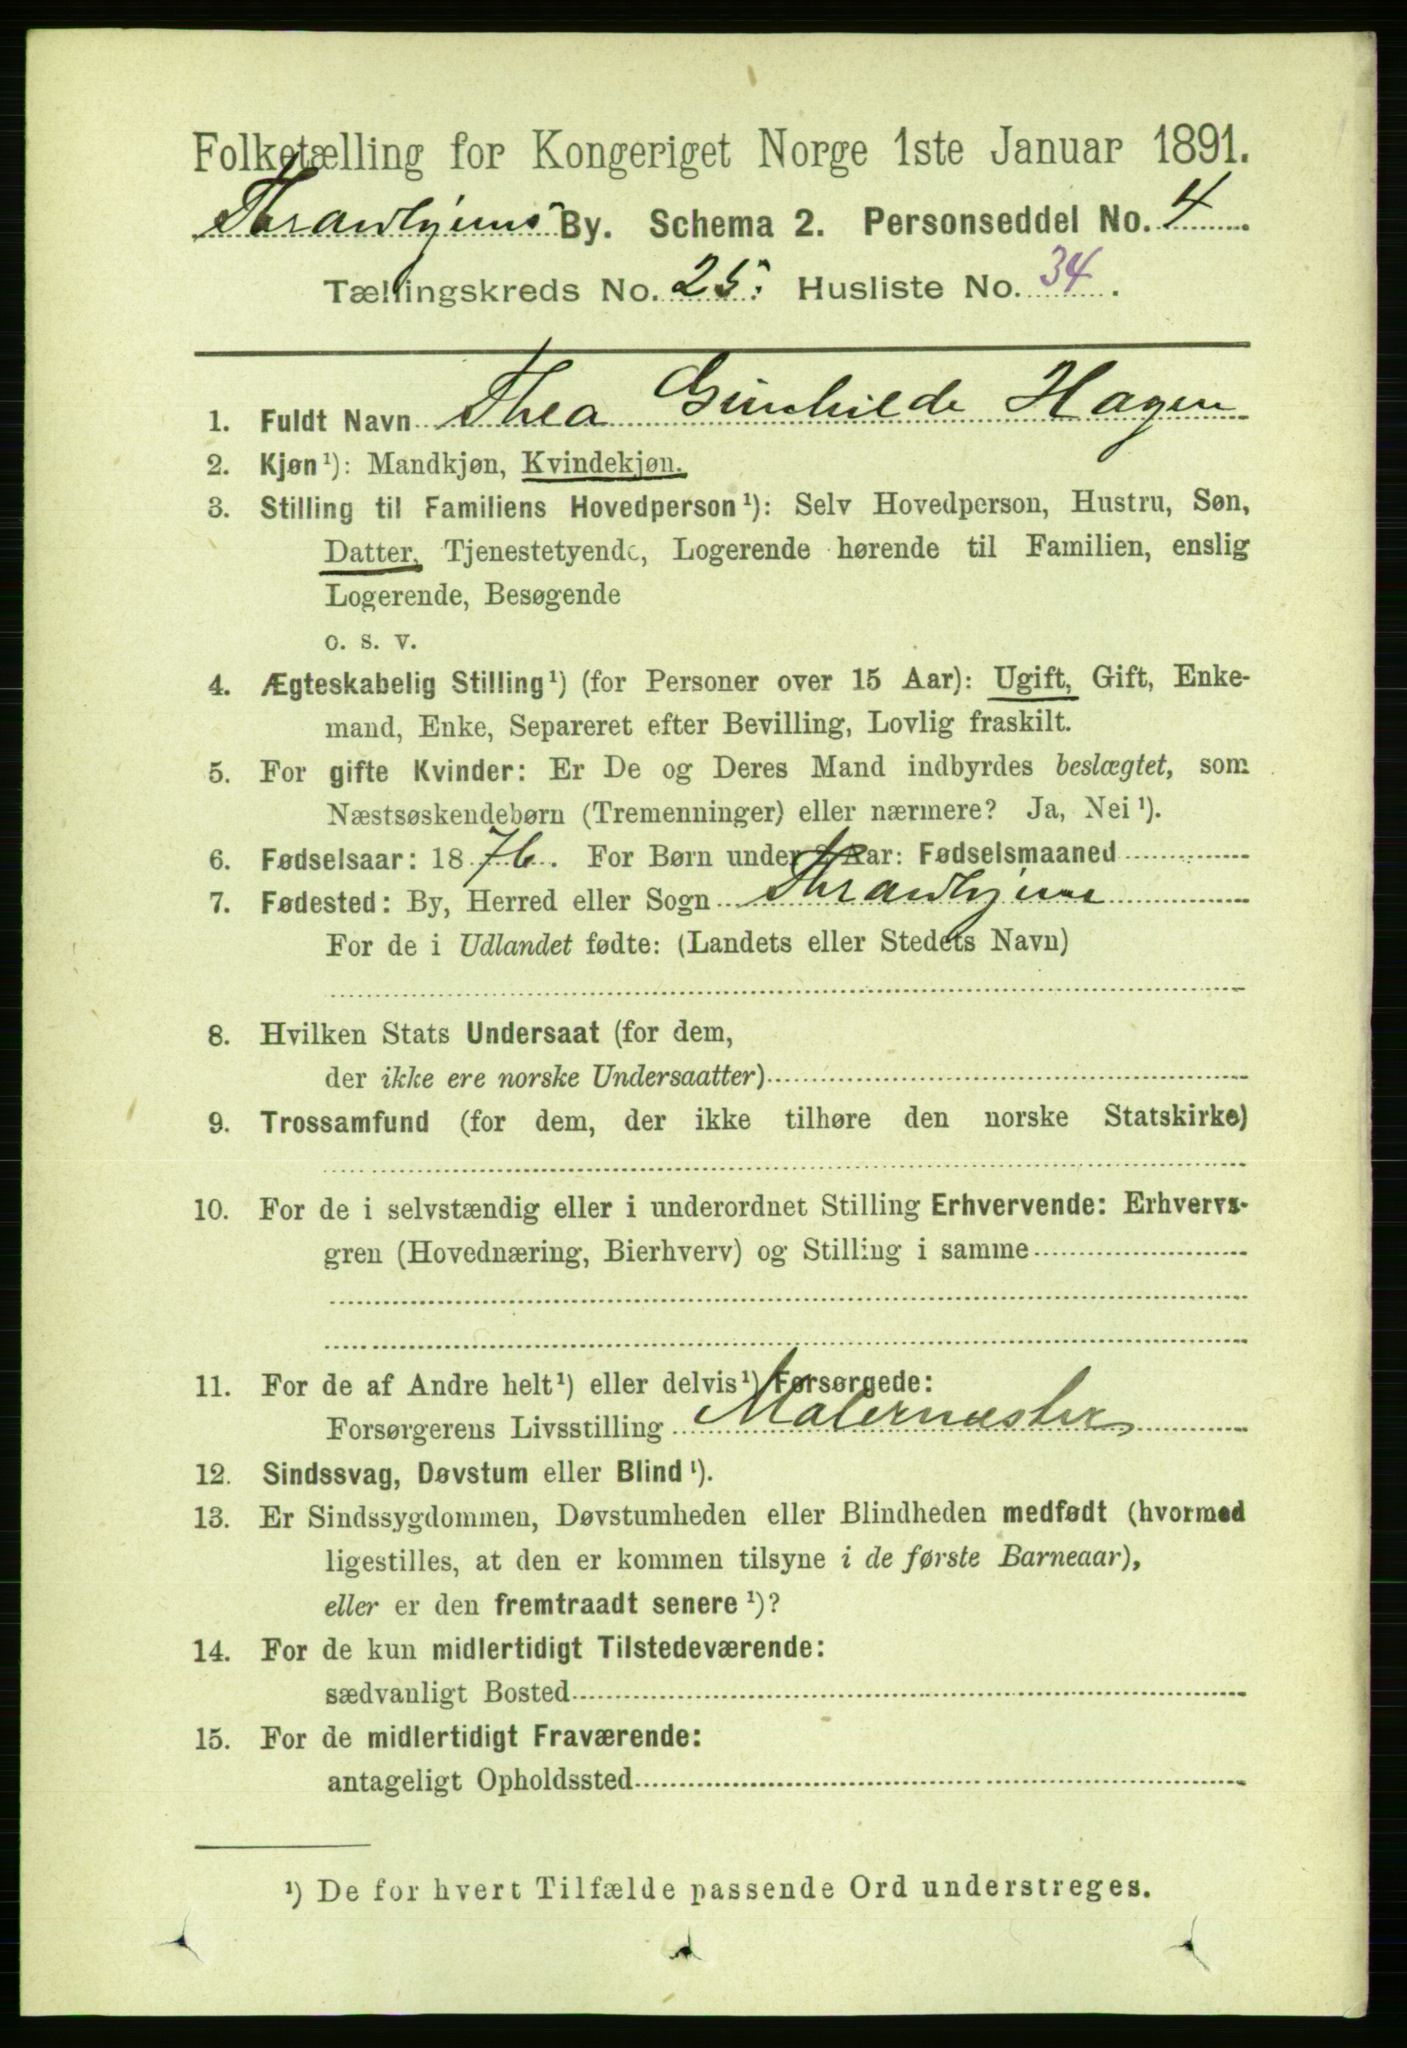 Folketælling for Kongeriget Norge 1ste Januar 1891.
Thrandhjems By. Schema 2. Personseddel No. 4
Tællingskreds No. 25. Husliste No. 34.
1. Fuldt Navn Thea Gunhilde Hagen
2. Kjøn¹): Mandkjøn, Kvindekjøn.
3. Stilling til Familiens Hovedperson¹): Selv Hovedperson, Hustru, Søn,
Datter, Tjenestetyende, Logerende hørende til Familien, enslig
Logerende, Besøgende
o. s. v.
4. Ægteskabelig Stilling¹) (for Personer over 15 Aar): Ugift, Gift, Enke-
mand, Enke, Separeret efter Bevilling, Lovlig fraskilt.
5. For gifte Kvinder: Er De og Deres Mand indbyrdes beslægtet, som
Næstsøskendebørn (Tremenninger) eller nærmere? Ja, Nei¹).
6. Fødselsaar: 1876. For Børn under 2 Aar: Fødselsmaaned
7. Fødested: By, Herred eller Sogn Thrandhjem
For de i Udlandet fødte: (Landets eller Stedets Navn)
8. Hvilken Stats Undersaat (for dem,
der ikke ere norske Undersaatter)
9. Trossamfund (for dem, der ikke tilhøre den norske Statskirke)
10. For de i selvstændig eller i underordnet Stilling Erhvervende: Erhvervs-
gren (Hovednæring, Bierhverv) og Stilling i samme
11. For de af Andre helt¹) eller delvis¹) Forsørgede:
Forsørgerens Livsstilling Malermester
12. Sindssvag, Døvstum eller Blind¹).
13. Er Sindssygdommen, Døvstumheden eller Blindheden medfødt (hvormed
ligestilles, at den er kommen tilsyne i de første Barneaar),
eller er den fremtraadt senere¹)?
14. For de kun midlertidigt Tilstedeværende:
sædvanligt Bosted
15. For de midlertidigt Fraværende:
antageligt Opholdssted
¹) De for hvert Tilfælde passende Ord understreges.